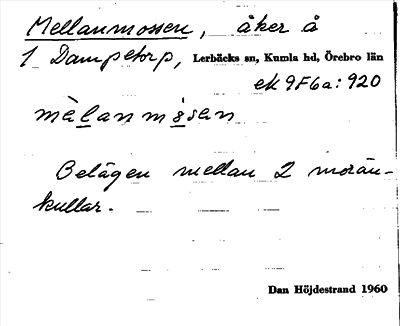 Mellanmossen, åker å
1 Dampetorp, Lerbäcks sn, Kumla hd, Örebro län
ek 9F6a:920
mèlanmòsen
Belägen mellan 2 morän-
kullar.
Dan Höjdestrand 1960